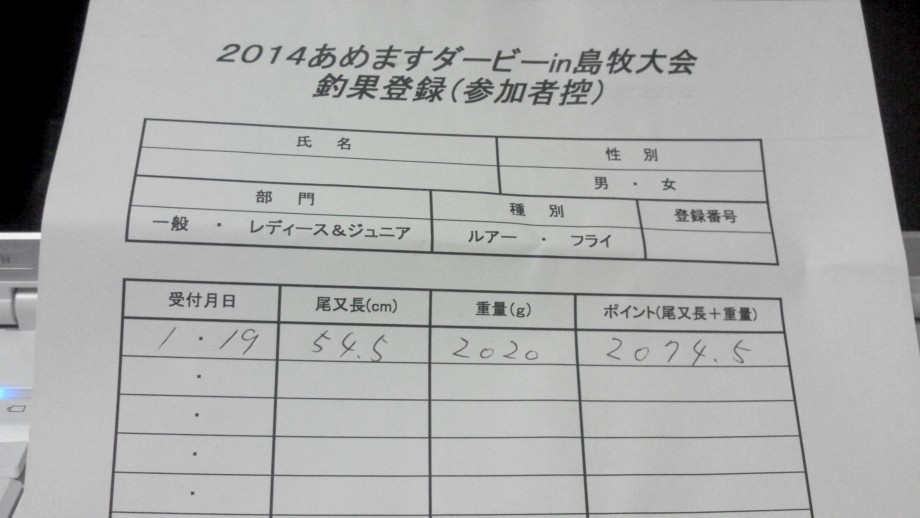 2014あめますダービーin島牧大会
釣果登録(参加者控)
氏 名 性 別
男 ・ 女
部 門 種 別 登録番号
一般 ・ レディース&ジュニア ルアー ・ フライ
受付月日 尾又長(cm) 重量(g) ポイント(尾又長+重量)
1・19 54.5 2020 2074.5
・
・
・
・